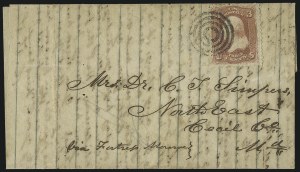 Mrs. Dr. C. T. Simpers
North East
Cecil Co
Md
via Fortress Monroe